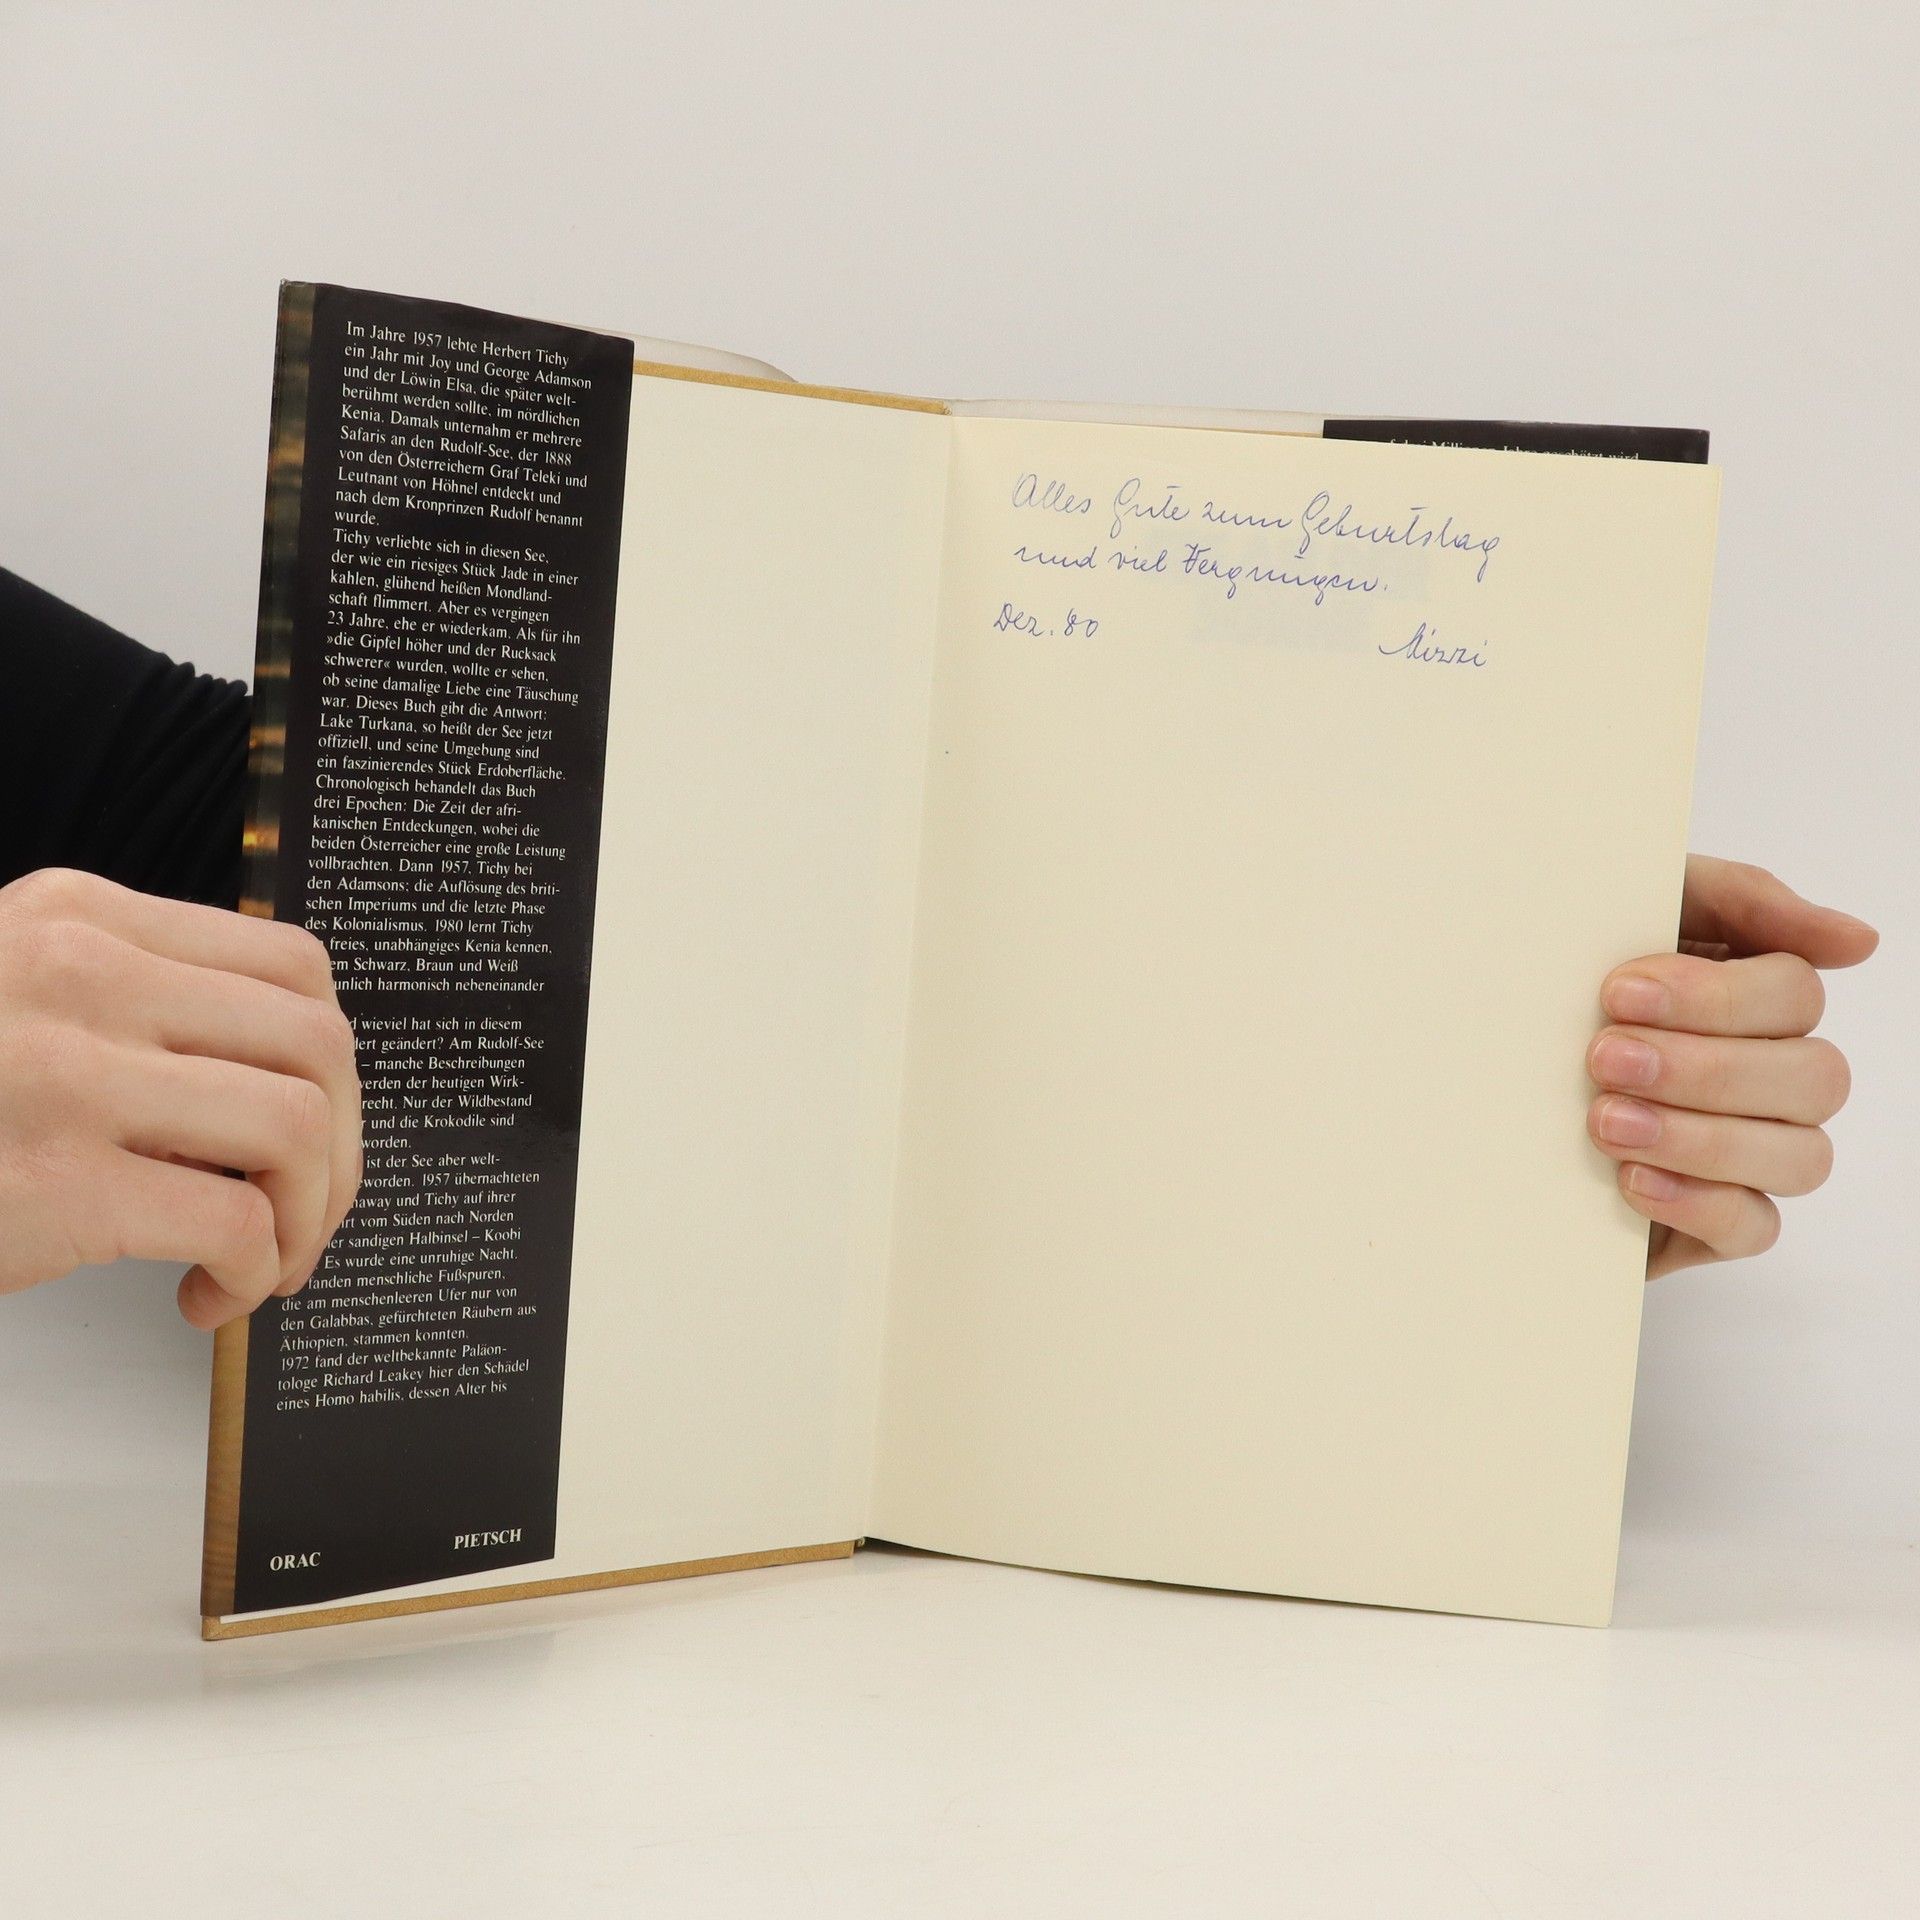 Im Jahre 1957 lebte Herbert Tichy
ein Jahr mit Joy und George Adamson
und der Löwin Elsa, die später welt-
berühmt werden sollte, im nördlichen
Kenia. Damals unternahm er mehrere
Safaris an den Rudolf-See, der 1888
von den Österreichern Graf Teleki und
Leutnant von Höhnel entdeckt und
nach dem Kronprinzen Rudolf benannt
wurde.
Tichy verliebte sich in diesen See,
der wie ein riesiges Stück Jade in einer
kahlen, glühend heißen Mondland-
schaft flimmert. Aber es vergingen
23 Jahre, ehe er wiederkam. Als für ihn
»die Gipfel höher und der Rucksack
schwerer« wurden, wollte er sehen,
ob seine damalige Liebe eine Täuschung
war. Dieses Buch gibt die Antwort:
Lake Turkana, so heißt der See jetzt
offiziell, und seine Umgebung sind
ein faszinierendes Stück Erdoberfläche.
Chronologisch behandelt das Buch
drei Epochen: Die Zeit der afri-
kanischen Entdeckungen, wobei die
beiden Österreicher eine große Leistung
vollbrachten. Dann 1957, Tichy bei
den Adamsons; die Auflösung des briti-
schen Imperiums und die letzte Phase
des Kolonialismus. 1980 lernt Tichy
freies, unabhängiges Kenia kennen,
em Schwarz, Braun und Weiß
unlich harmonisch nebeneinander
d wieviel hat sich in diesem
dert geändert? Am Rudolf-See
– manche Beschreibungen
werden der heutigen Wirk-
recht. Nur der Wildbestand
r und die Krokodile sind
worden.
ist der See aber welt-
eworden. 1957 übernachteten
haway und Tichy auf ihrer
rt vom Süden nach Norden
er sandigen Halbinsel – Koobi
Es wurde eine unruhige Nacht.
fanden menschliche Fußspuren,
die am menschenleeren Ufer nur von
den Galabbas, gefürchteten Räubern aus
Äthiopien, stammen konnten.
1972 fand der weltbekannte Paläon-
tologe Richard Leakey hier den Schädel
eines Homo habilis, dessen Alter bis
ORAC PIETSCH
drei Millionen Jahre geschätzt wird
Alles Gute zum Geburtstag
und viel Vergnügen.
Dez. 80 Mizzi